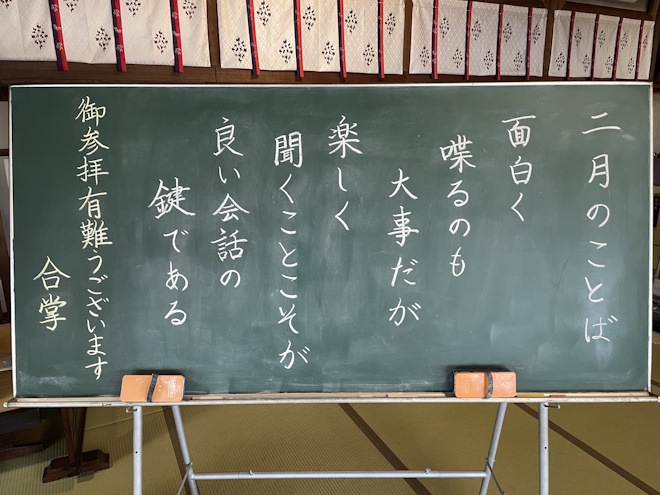 二月のことば
面白く
喋るのも
大事だが
楽しく
聞くことこそが
良い会話の
鍵である
御参拝有難うございます
合掌